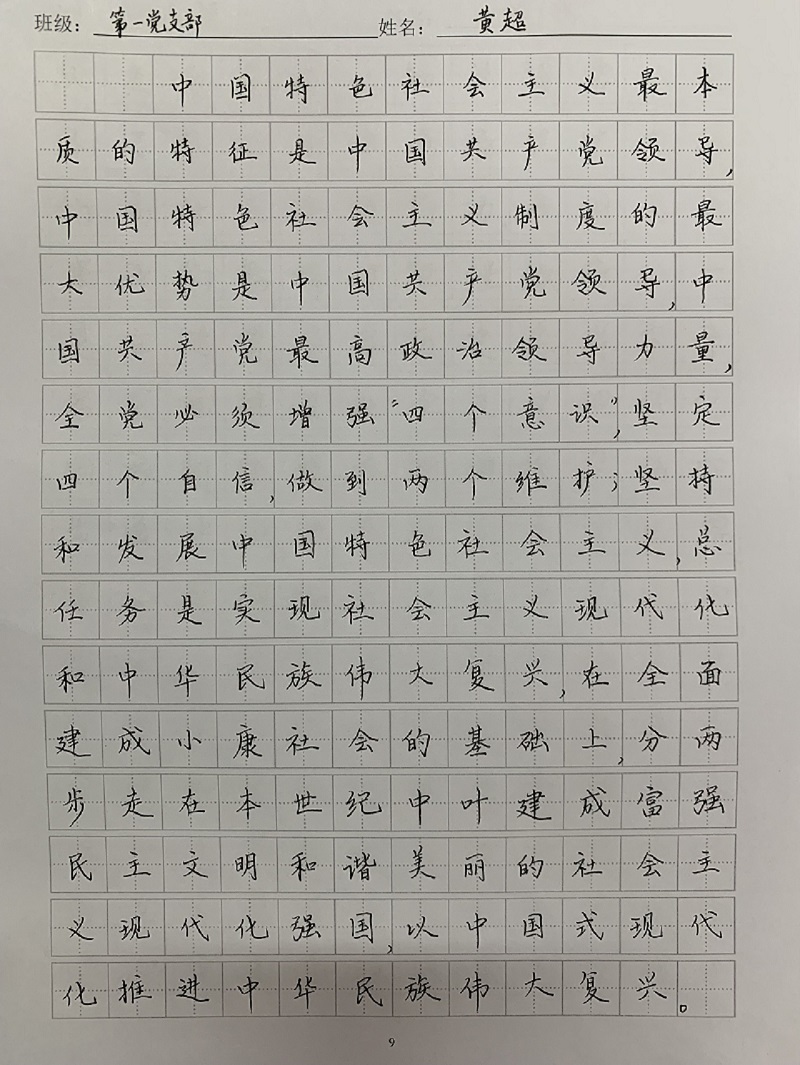 班级：第一党支部 姓名：黄超
中国特色社会主义最本
质的特征是中国共产党领导，
中国特色社会主义制度的最
大优势是中国共产党领导，中
国共产党最高政治领导力量，
全党必须增强“四个意识”，坚定
四个自信，做到两个维护；坚持
和发展中国特色社会主义，总
任务是实现社会主义现代化
和中华民族伟大复兴，在全面
建成小康社会的基础上，分两
步走在本世纪中叶建成富强
民主文明和谐美丽的社会主
义现代化强国，以中国式现代
化推进中华民族伟大复兴。
9